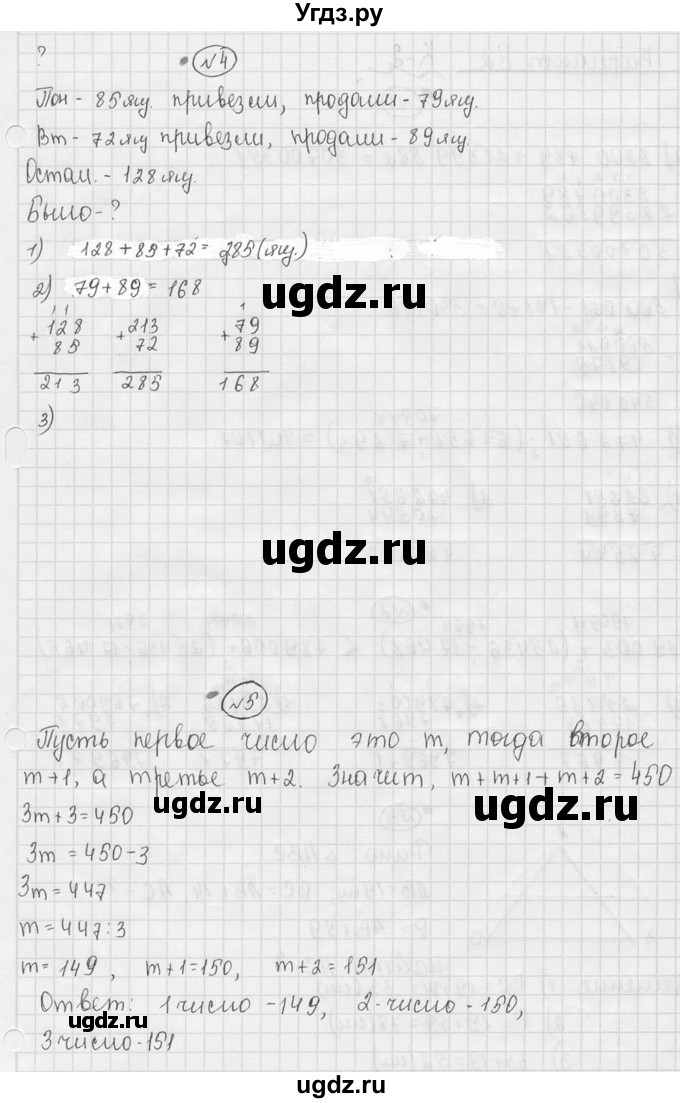 Угдз.ру
?
№4
Пон - 85 ящ. привезли, продали - 79 ящ.
Вт - 72 ящ привезли, продали - 89 ящ.
Остал. - 128 ящ.
Было - ?
1) 128 + 85 + 72 = 285 (ящ.)
2) 79 + 89 = 168
ugdz.ru
1 1 1
+ 128 + 213 + 79
85 72 89
213 285 168
3)
ugdz.ru
№5
Пусть первое число это m, тогда второе
m+1, а третье m+2. Значит, m+m+1+m+2=450
ugdz.ru ugdz.ru
3m+3=450
3m = 450-3
3m = 447
m = 447:3
m = 149, m+1=150, m+2=151
Ответ: 1 число - 149, 2-число - 150,
ugdz.ru
3 число - 151
ugdz.ru